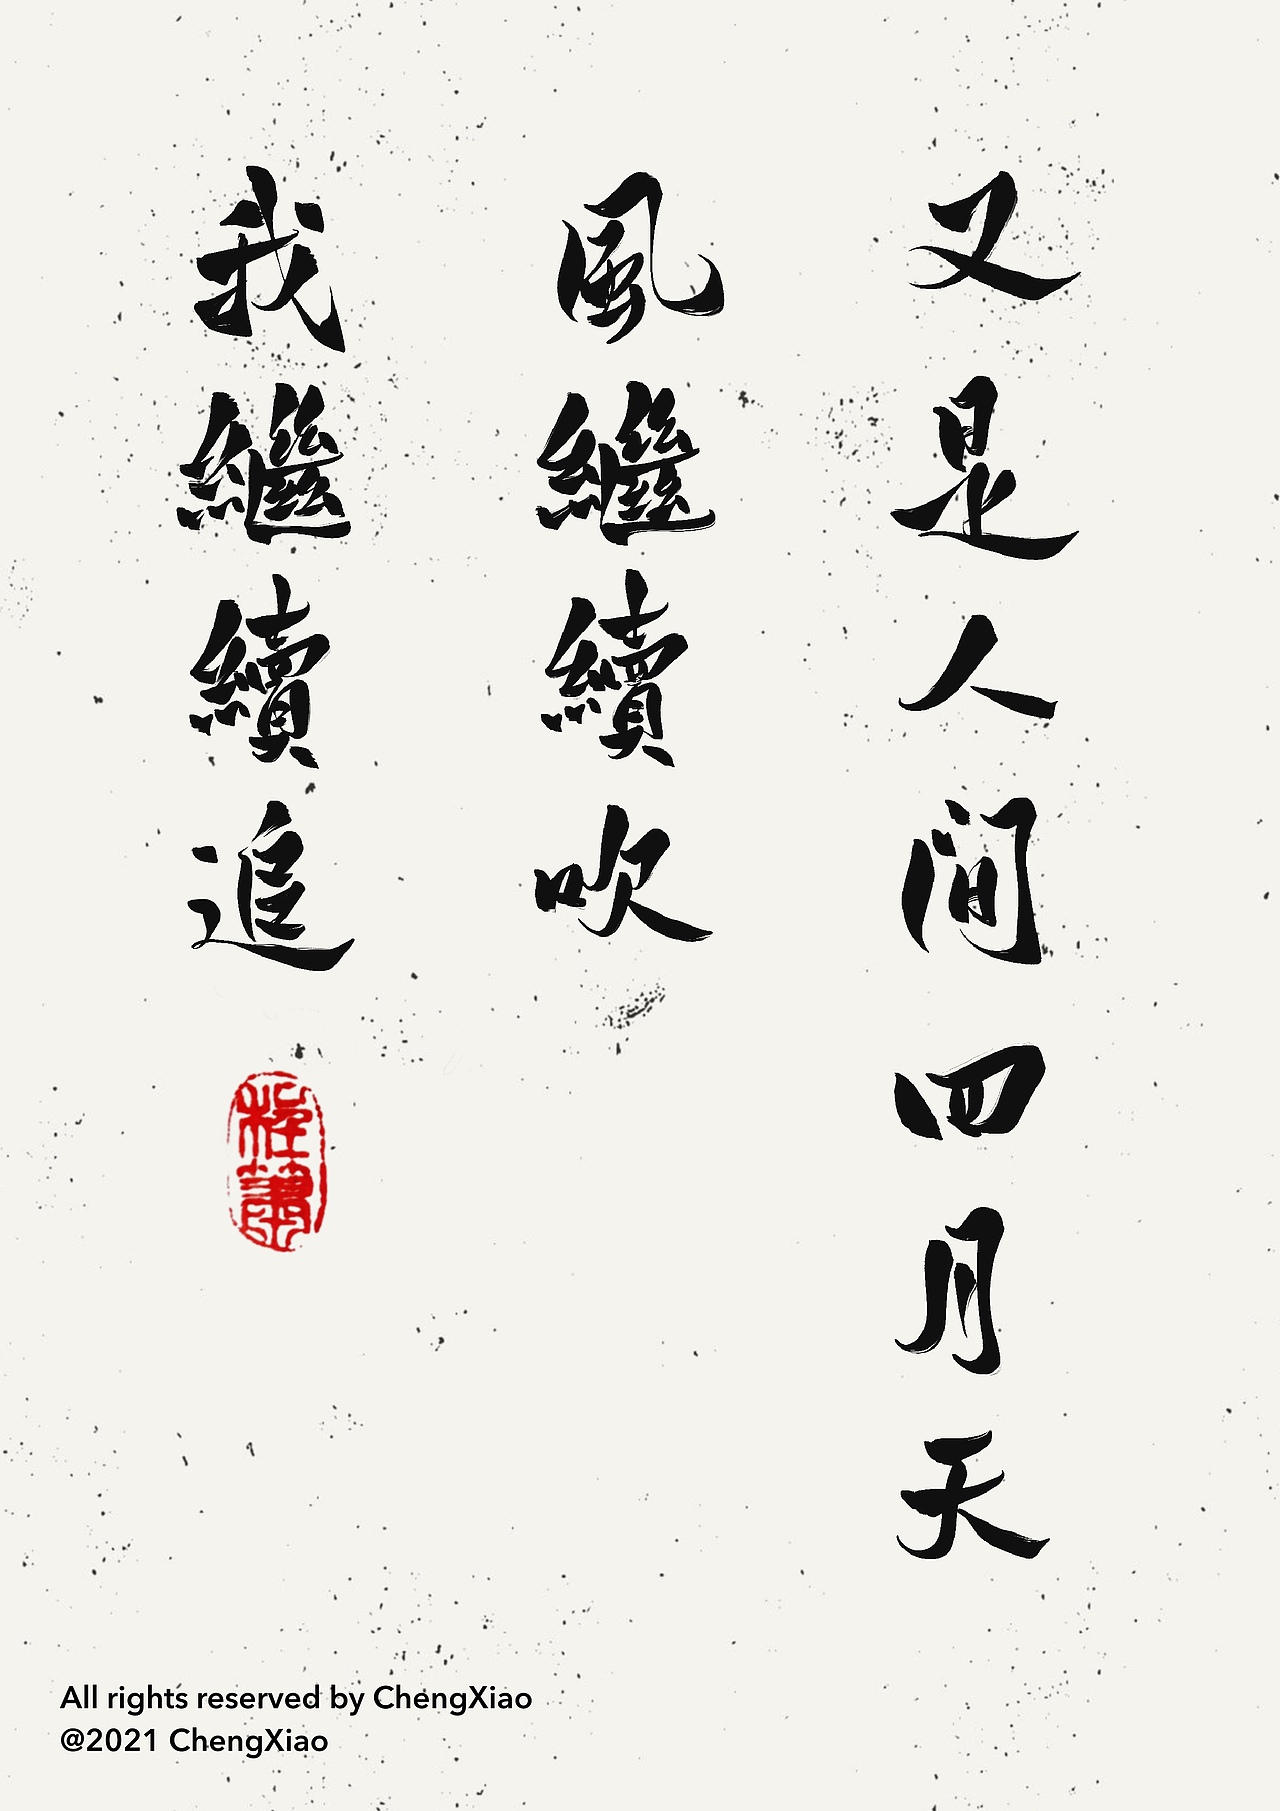 又是人間四月天
風繼續吹
我繼續追
程蕭
All rights reserved by ChengXiao
@2021 ChengXiao